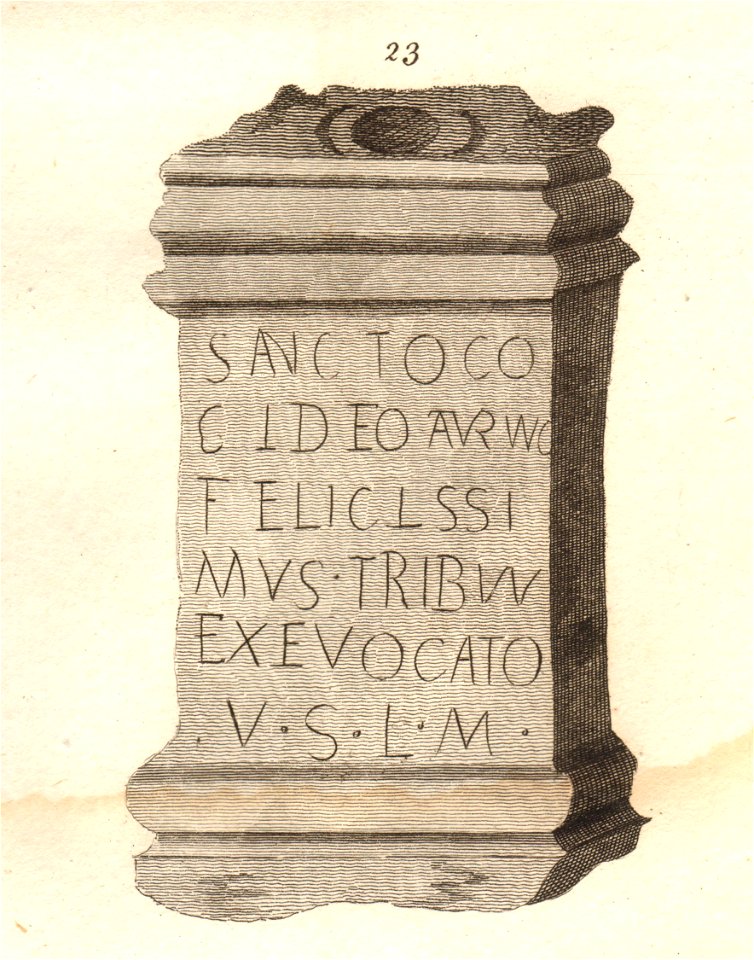 23
SANCTO CO
CIDEO AVRVNC
FELICISSI
MVS · TRIBVN
EX EVOCATO
. V · S · L · M ·